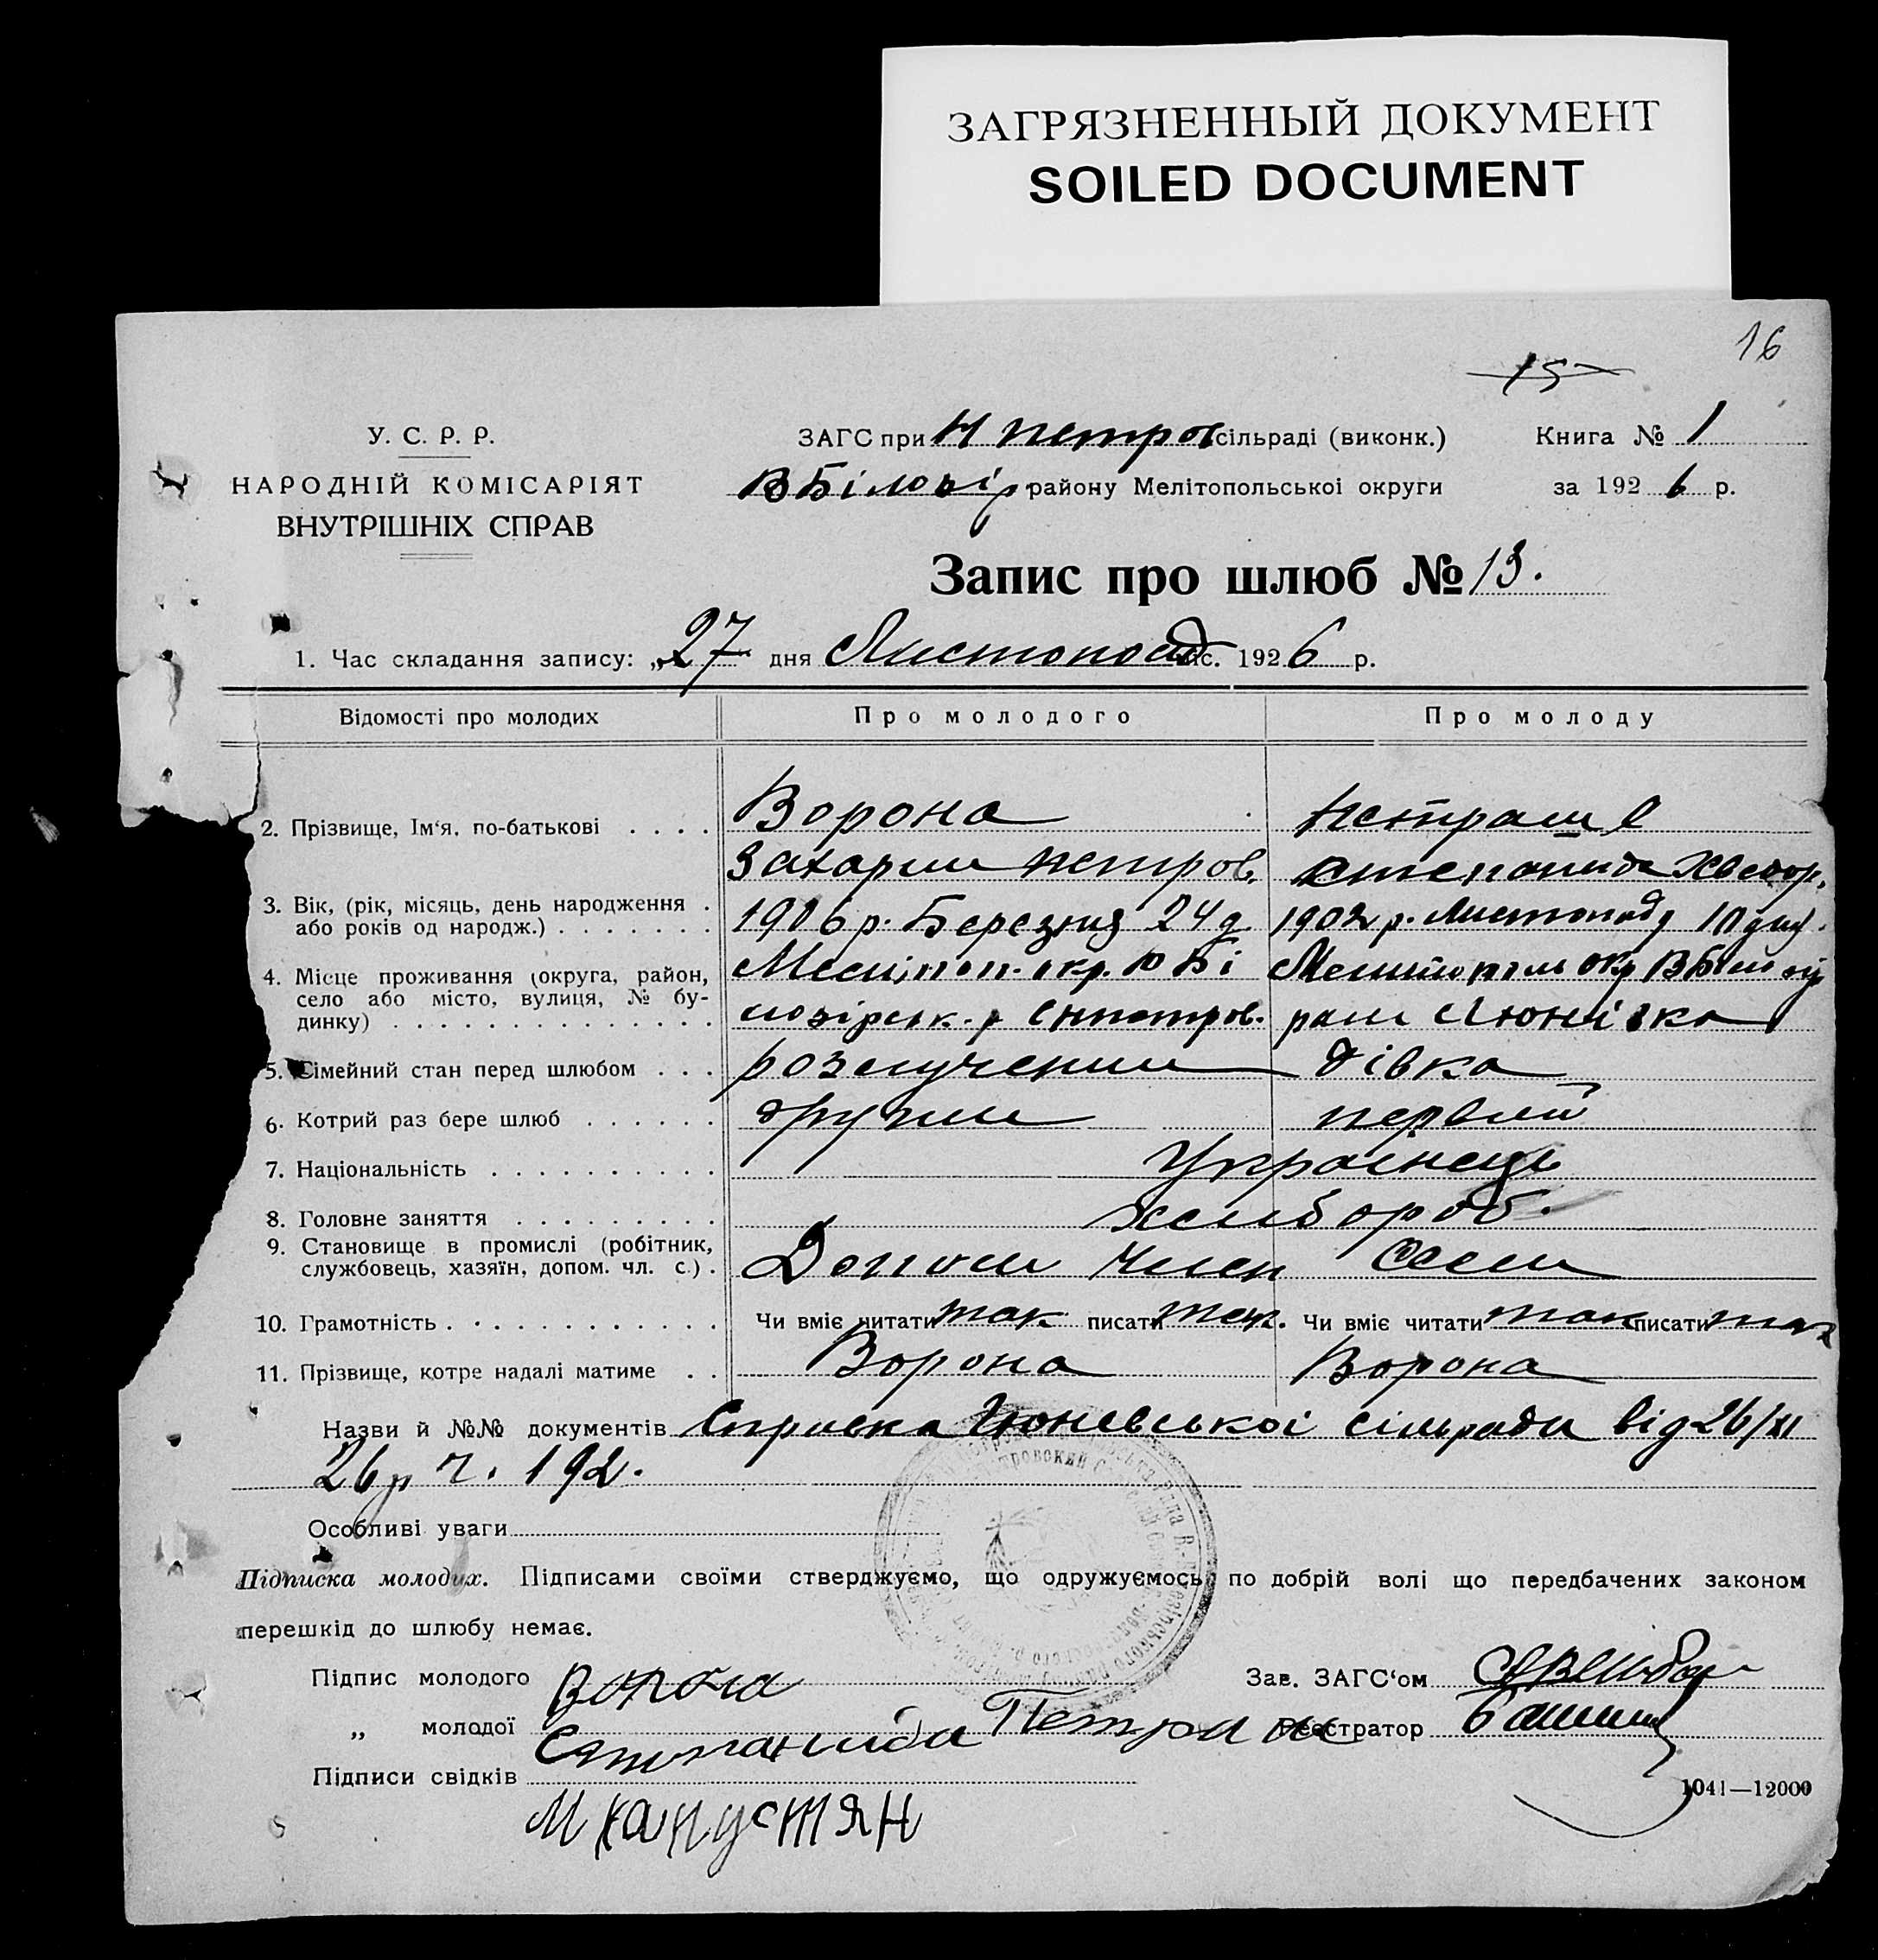 ЗАГРЯЗНЕННЫЙ ДОКУМЕНТ
SOILED DOCUMENT
16
15
У. С. Р. Р.
НАРОДНІЙ КОМІСАРІЯТ
ВНУТРІШНІХ СПРАВ
ЗАГС при Н Петров сільраді (виконк.) Книга № 1
В Білозір району Мелітопольськоі округи за 1926 р.
Запис про шлюб № 13.
1. Час складання запису: „27 дня Листопад міс. 1926 р.
Відомості про молодих Про молодого Про молоду
2. Прізвище, Ім'я, по-батькові Ворона Петраш
Захарии Петров. Степанида Хведор.
3. Вік, (рік, місяць, день народження або років од народж.) 1906 р. Березня 24 д 1902 р. Листопаду 10 дня.
4. Місце проживання (округа, район, село або місто, вулиця, № будинку) Меліпоп. окр. Бі Мелитополь окр В Білозір
лозірськ. р Нпетров. раи Люнівка
5. Сімейний стан перед шлюбом розлучении дівка
6. Котрий раз бере шлюб други первий
7. Національність Украінець
8. Головне заняття хлибороб.
9. Становище в промислі (робітник, службовець, хазяїн, допом. чл. с.) Допом Член Семи
10. Грамотність Чи вміє читати так писати так. Чи вміє читати так писати так
11. Прізвище, котре надалі матиме Ворона Ворона
Назви й №№ документів Справка Люневськоі сільради від 26/XI
26р ч. 192.
Особливі уваги
Підписка молодих. Підписами своїми стверджуємо, що одружуємось по добрій волі що передбачених законом
перешкід до шлюбу немає.
Підпис молодого Ворона Зав. ЗАГС'ом
„ молодої Степанида Петраш Реєстратор
Підписи свідків
М Капустян
1041—12000